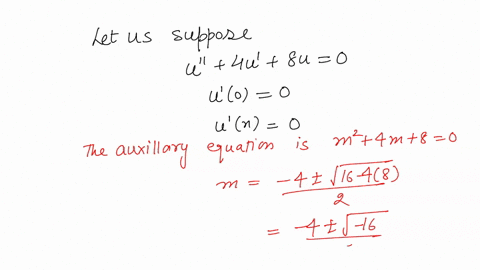 Let us suppose
u'' + 4u' + 8u = 0
u'(0) = 0
u'(π) = 0
The auxillary equation is m² + 4m + 8 = 0
m = (-4 ± √(16-4(8)))/2
= -4 ± √-16